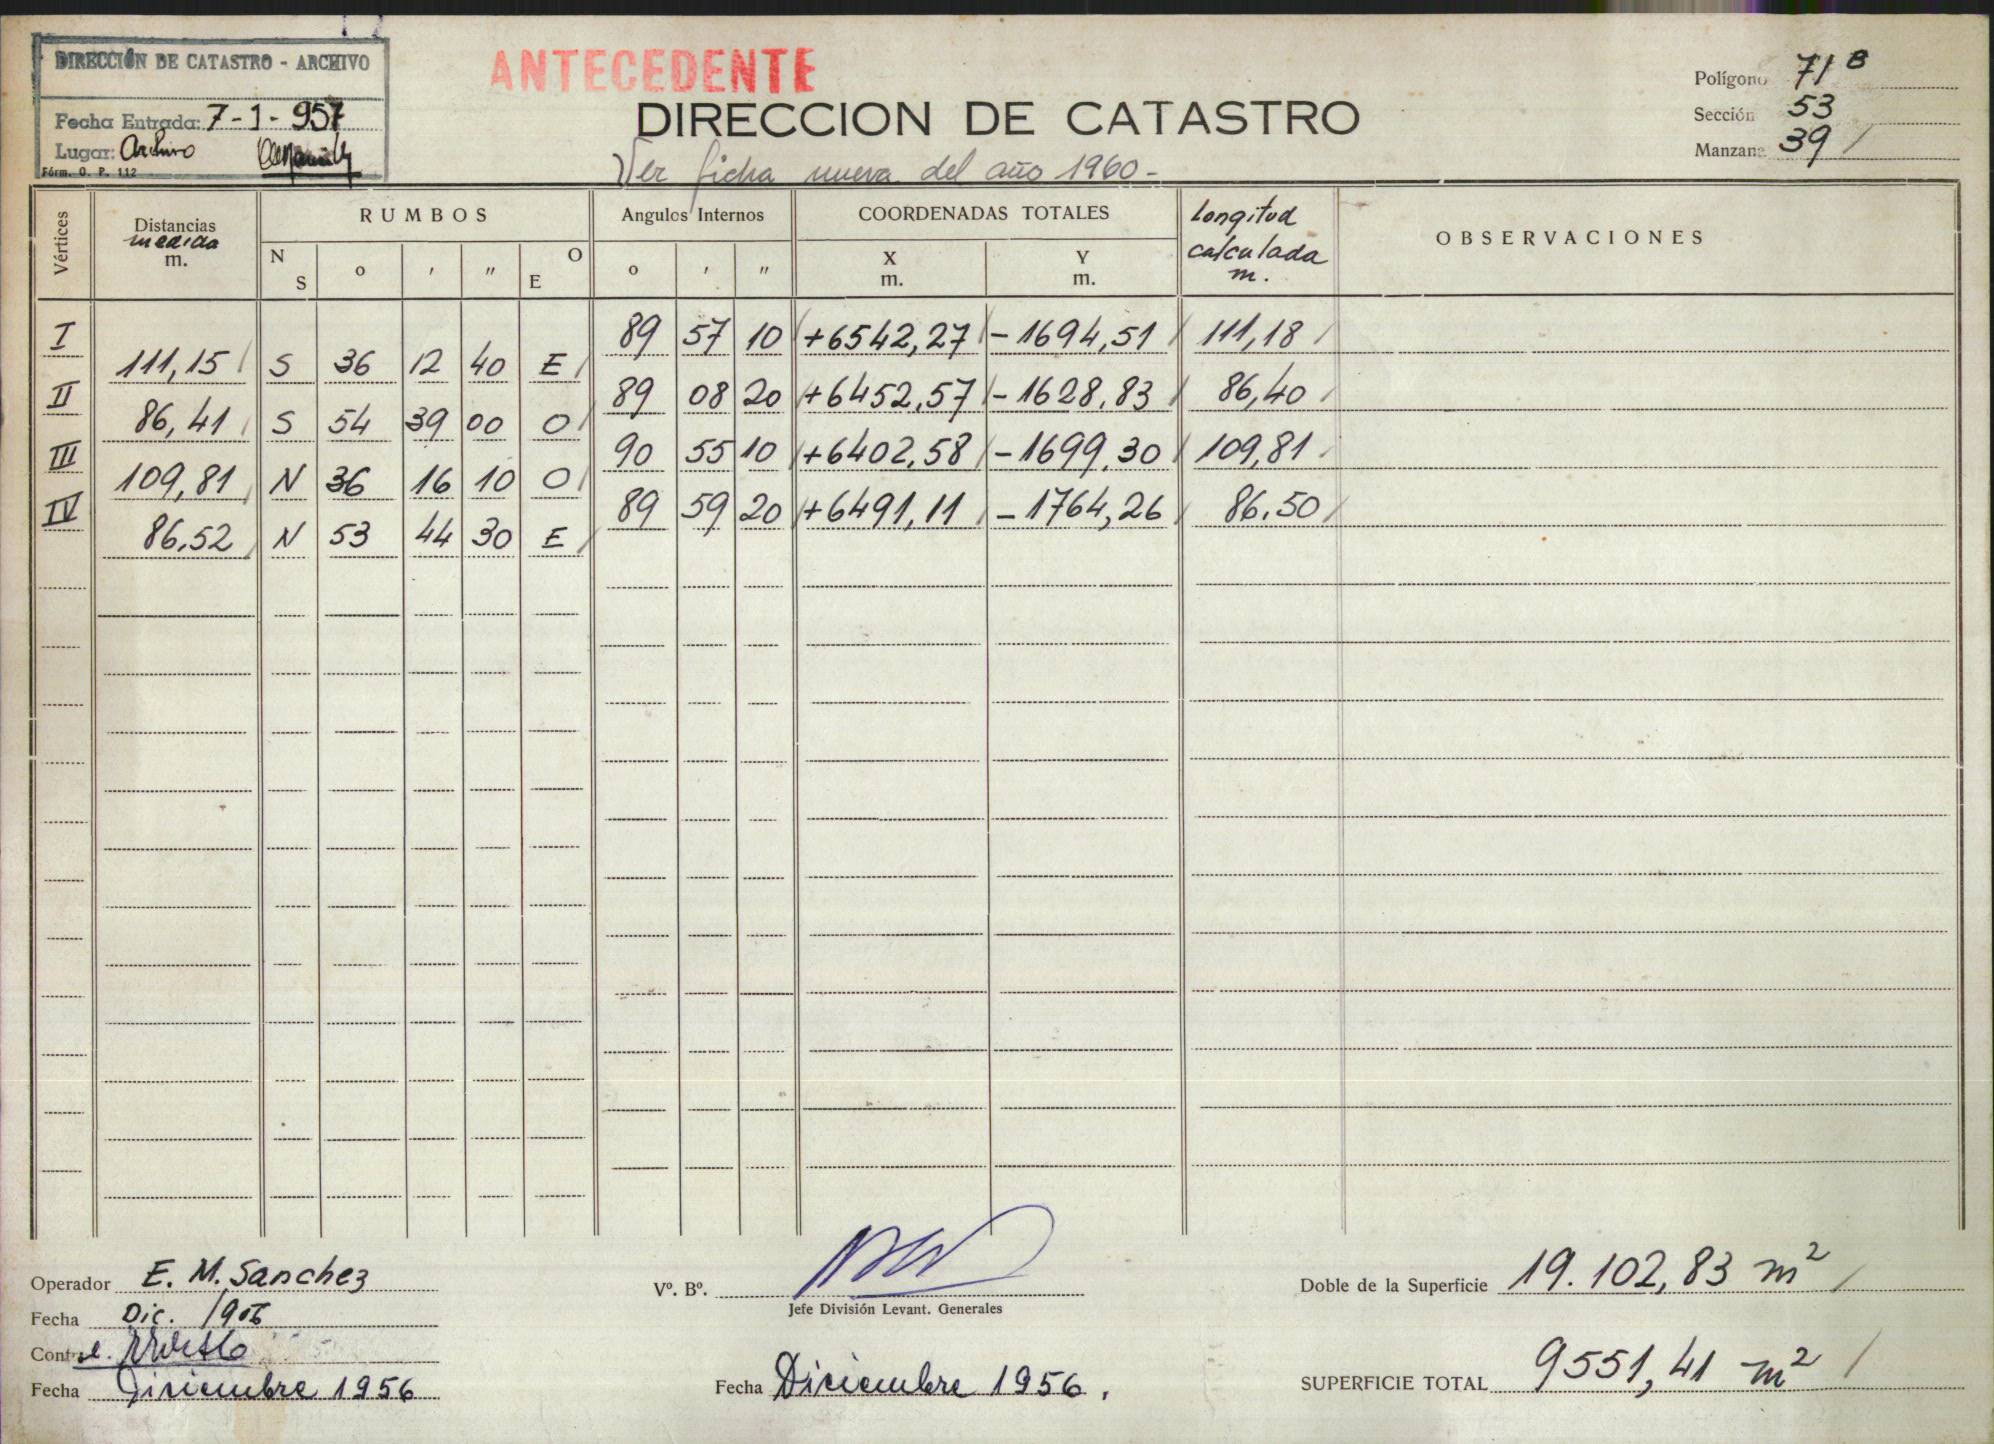 DIRECCIÓN DE CATASTRO - ARCHIVO
Fecha Entrada: 7-1-957
Lugar: Archivo
Fórm. O. P. 112
ANTECEDENTE
DIRECCION DE CATASTRO
Ver ficha nueva del año 1960-
Polígono 71 B
Sección 53
Manzana 39 /
Vértices
Distancias
medida
m.
RUMBOS
N
S
o
,
"
O
E
Angulos Internos
o , "
COORDENADAS TOTALES
X
m.
Y
m.
Longitud
calculada
m.
OBSERVACIONES
I 89 57 10 / +6542,27 / -1694,51 / 111,18 /
111,15 / S 36 12 40 E /
II 89 08 20 / +6452,57 / -1628,83 / 86,40 /
86,41 / S 54 39 00 O /
III 90 55 10 / +6402,58 / -1699,30 / 109,81 /
109,81 / N 36 16 10 O /
IV 89 59 20 / +6491,11 / -1764,26 / 86,50 /
86,52 / N 53 44 30 E /
Operador E. M. Sanchez
Fecha Dic. 1956
Contr
Fecha Diciembre 1956
Vº. Bº.
Jefe División Levant. Generales
Fecha Diciembre 1956.
Doble de la Superficie 19.102,83 m² /
SUPERFICIE TOTAL 9551,41 m² /